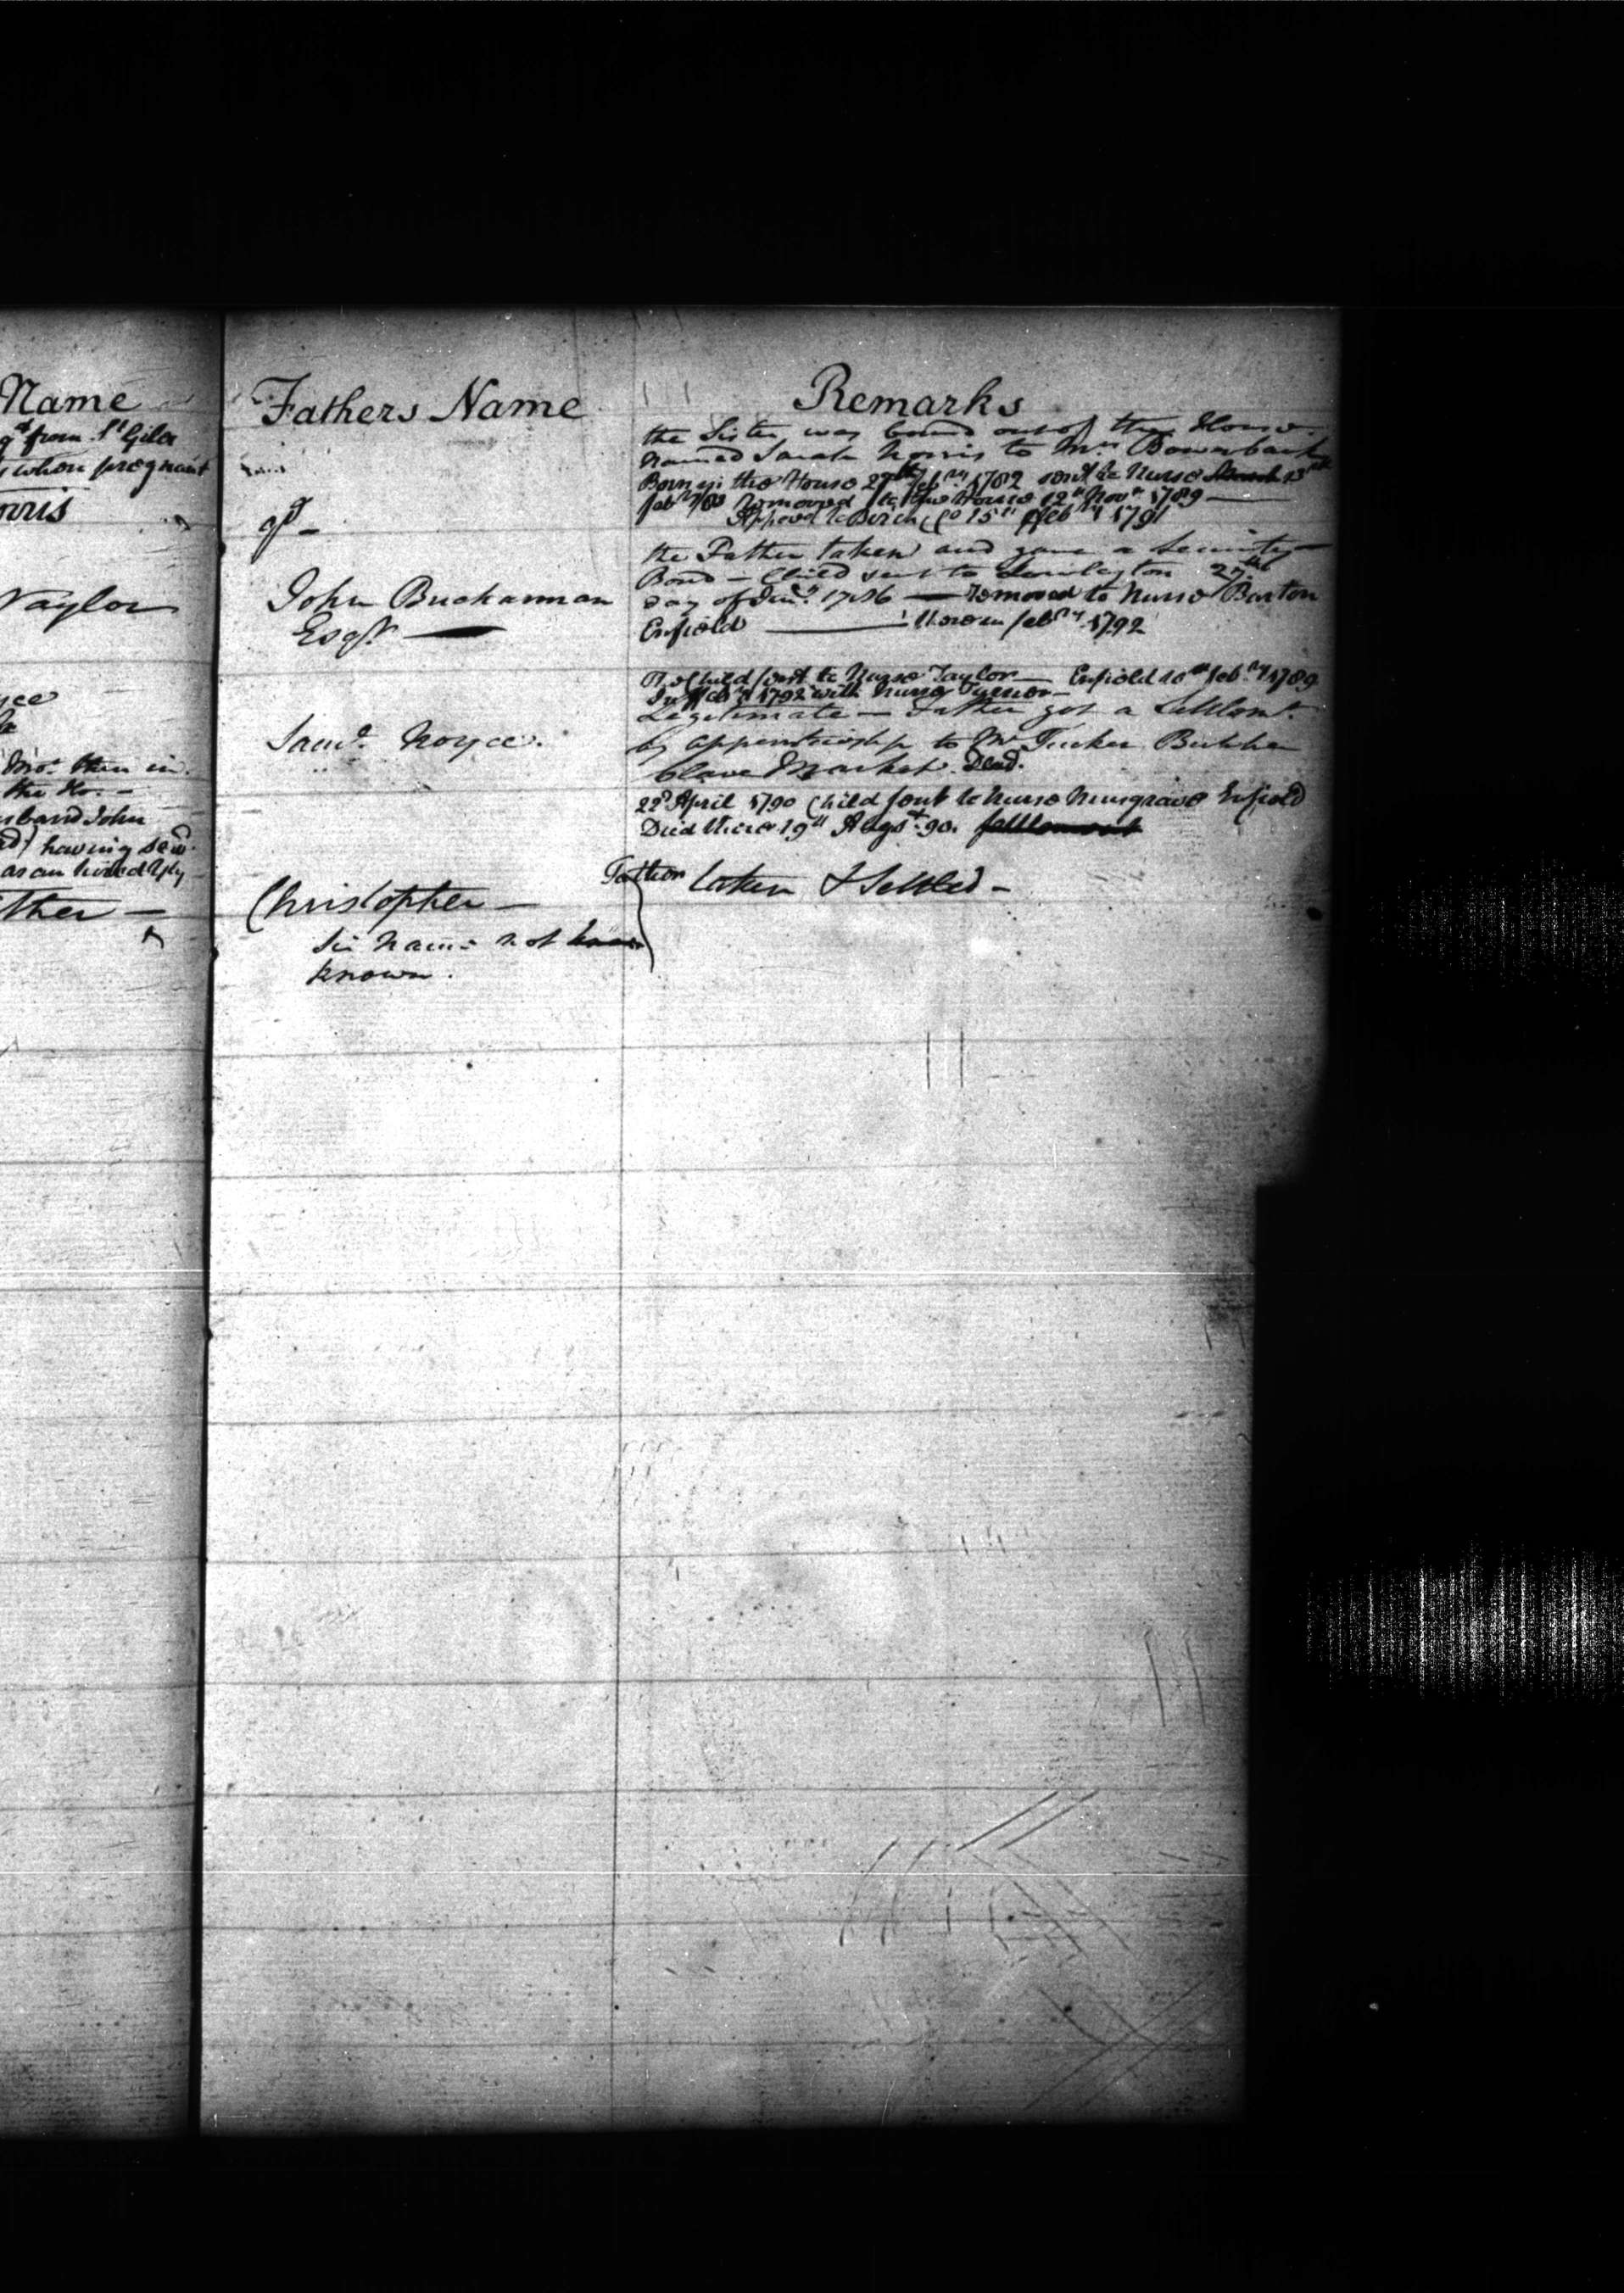 Name
from St Giles
when pregnant
rris
Naylor
yce
Mor. then in
the Ho. -
usband John
having said
as an hired Yly
ther -
Fathers Name
John Buchannan
Esqr.
Saml. Noyce.
Christopher -
Sir name not
known.
Remarks
the Sister was bound out of the House
named Sarah Norris to Mrs. Bowerbank
Born in the House 27th Feby. 1782 sent to Nurse March 13th
feby removed to the House 12th Novr. 1789
15th feby 1791
the Father taken and gave a Security
Bond - Child sent to 27th
day of 1786 - removed to Nurse Barton
Enfield feby. 1792
The Child sent to Nurse Taylor - Enfield 10th feby. 1789
In feby 1792 with Nurse Turner -
Legitimate - Father got a Settlemt.
by apprenticeship to Mr Tucker Butcher
Clare Market. Dead.
22d April 1790 Child sent to Nurse Musgrave Enfield
Died there 19th Augst. 90. settlement
Father taken & Settled -